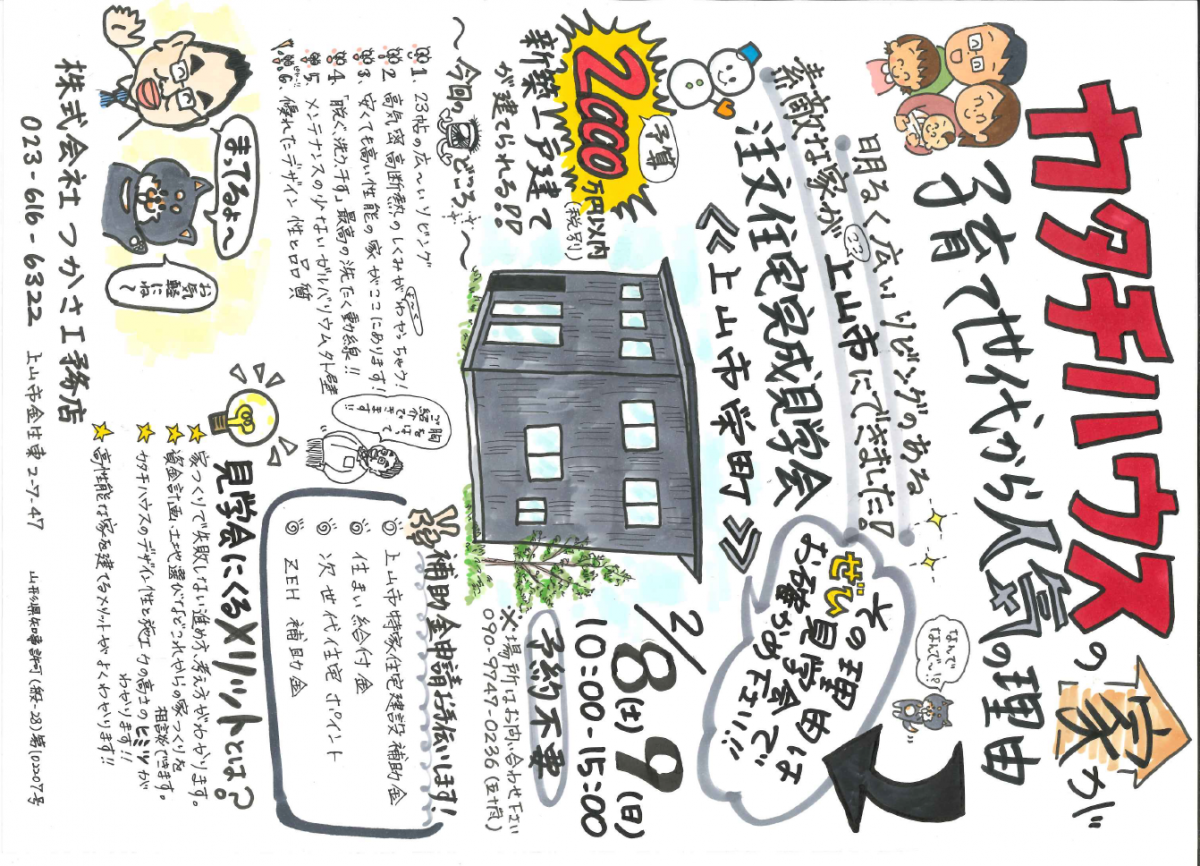 カタチハウスの家が
子育て世代から人気の理由
なんで
なんで〜?
明るく広いリビングのある
素敵な家が上山市にできました!
ココ
その理由は
ぜひ見学会で
お確かめ下さい!!
注文住宅完成見学会
≪上山市栄町≫
2/8(土)9(日)
10:00-15:00
予約不要
※場所はお問い合わせ下さい
090-9747-0236(五十嵐)
予算
2000万円以内
(税別)
新築一戸建て
が建てられる!!
〜今回の見どころ〜
1. 23帖の広〜いリビング
2. 高気密高断熱のしくみがわかっちゃう!
3. 安くても高い性能の家がここにあります!
4. 「脱ぐ洗う干す」最高の洗たく動線!!
5. メンテナンスの少ないガルバリウム外壁
6. 優れたデザイン性と品質
ご胸をはって
紹介できます!!
補助金申請お手伝いします!
◎上山市持家住宅建設補助金
◎住まい給付金
◎次世代住宅ポイント
◎ZEH補助金
見学会にくるメリットとは?
★家づくりで失敗しない進め方、考え方がわかります。
★資金計画、土地選びなどこれからの家づくりを
相談できます。
★カタチハウスのデザイン性と施工の高さのヒミツが
わかります!!
★高性能な家を建てるメリットがよくわかります!!
まってるよ〜
お気軽にね〜
株式会社つかさ工務店
023-616-6322 上山市金生東2-7-47